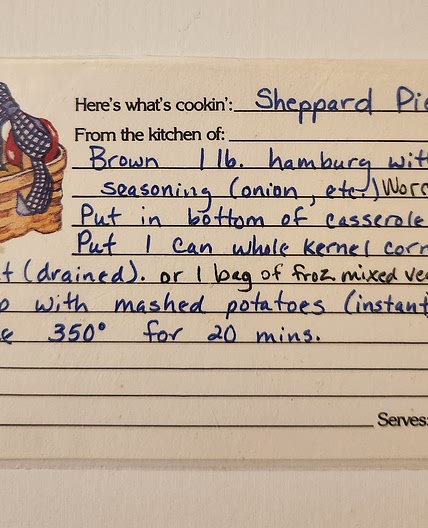 Here's what's cookin': Sheppard Pie
From the kitchen of:
Brown 1 lb. hamburg with
seasoning (onion, etc.) Worc
Put in bottom of casserole
Put 1 can whole kernel corn
t (drained). or 1 bag of froz mixed ve
p with mashed potatoes (instant
e 350° for 20 mins.
Serves: